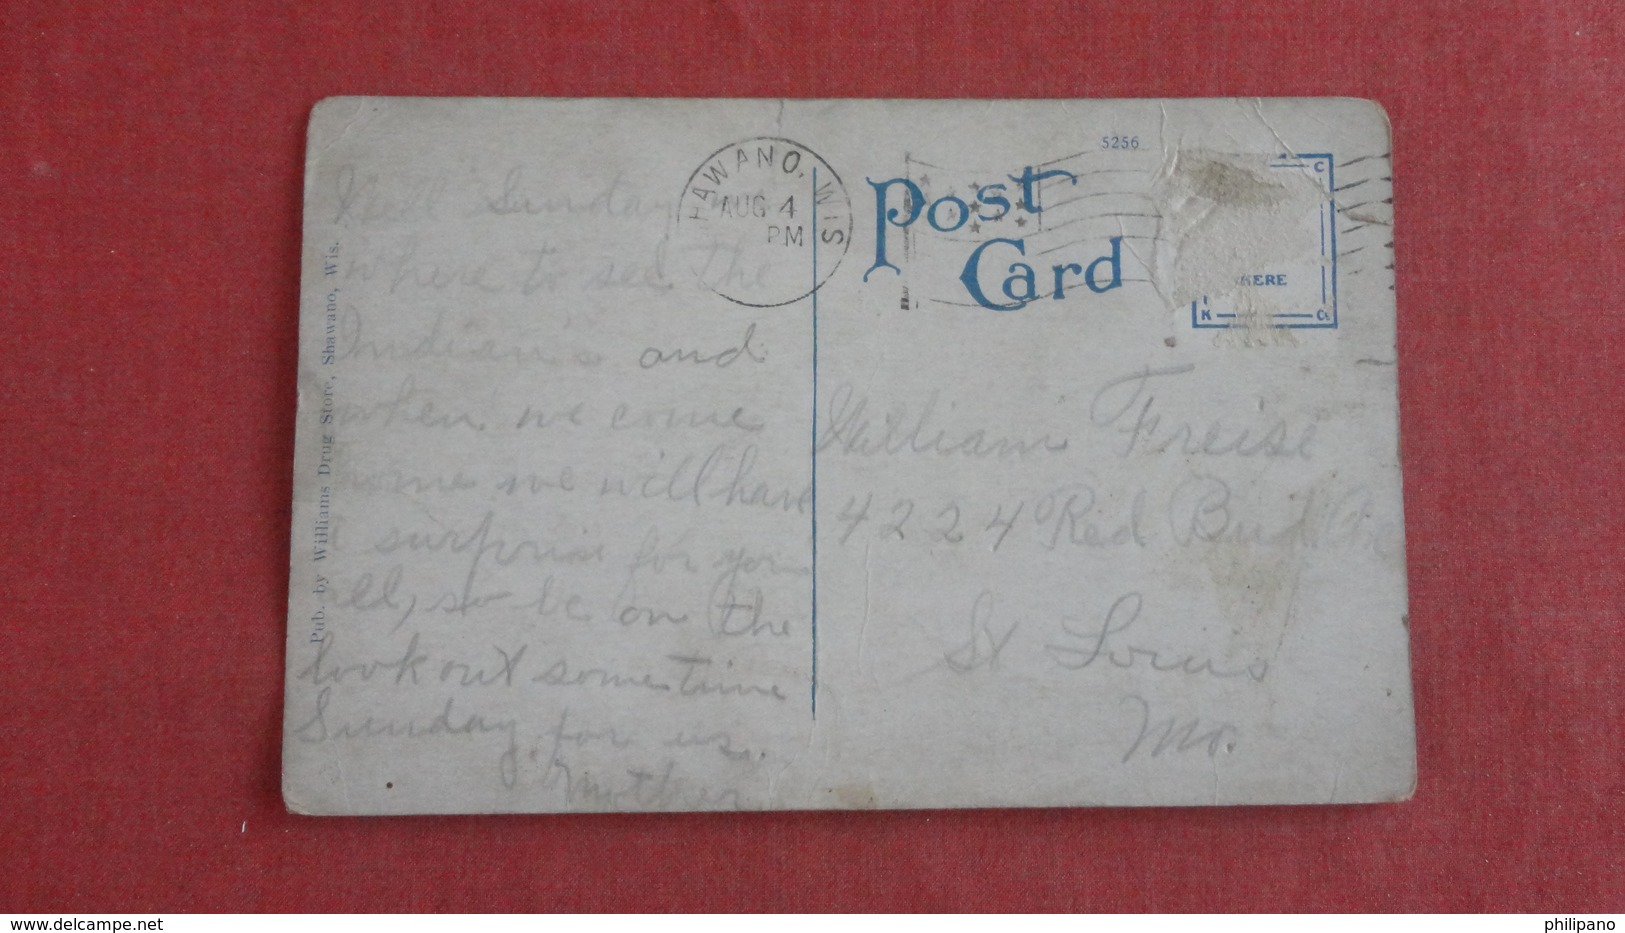 Sunday we
where to see the
Indian's and
when we come
home we will have
a surprise for you
all, so be on the
lookout sometime
Sunday for us.
Mother.
Pub. by Williams Drug Store, Shawano, Wis.
HAWANO, WIS
AUG 4
PM
5256
Post
Card
C
HERE
K
William Freise
4224 Red Bud Ave
St Louis
Mo.
philipano